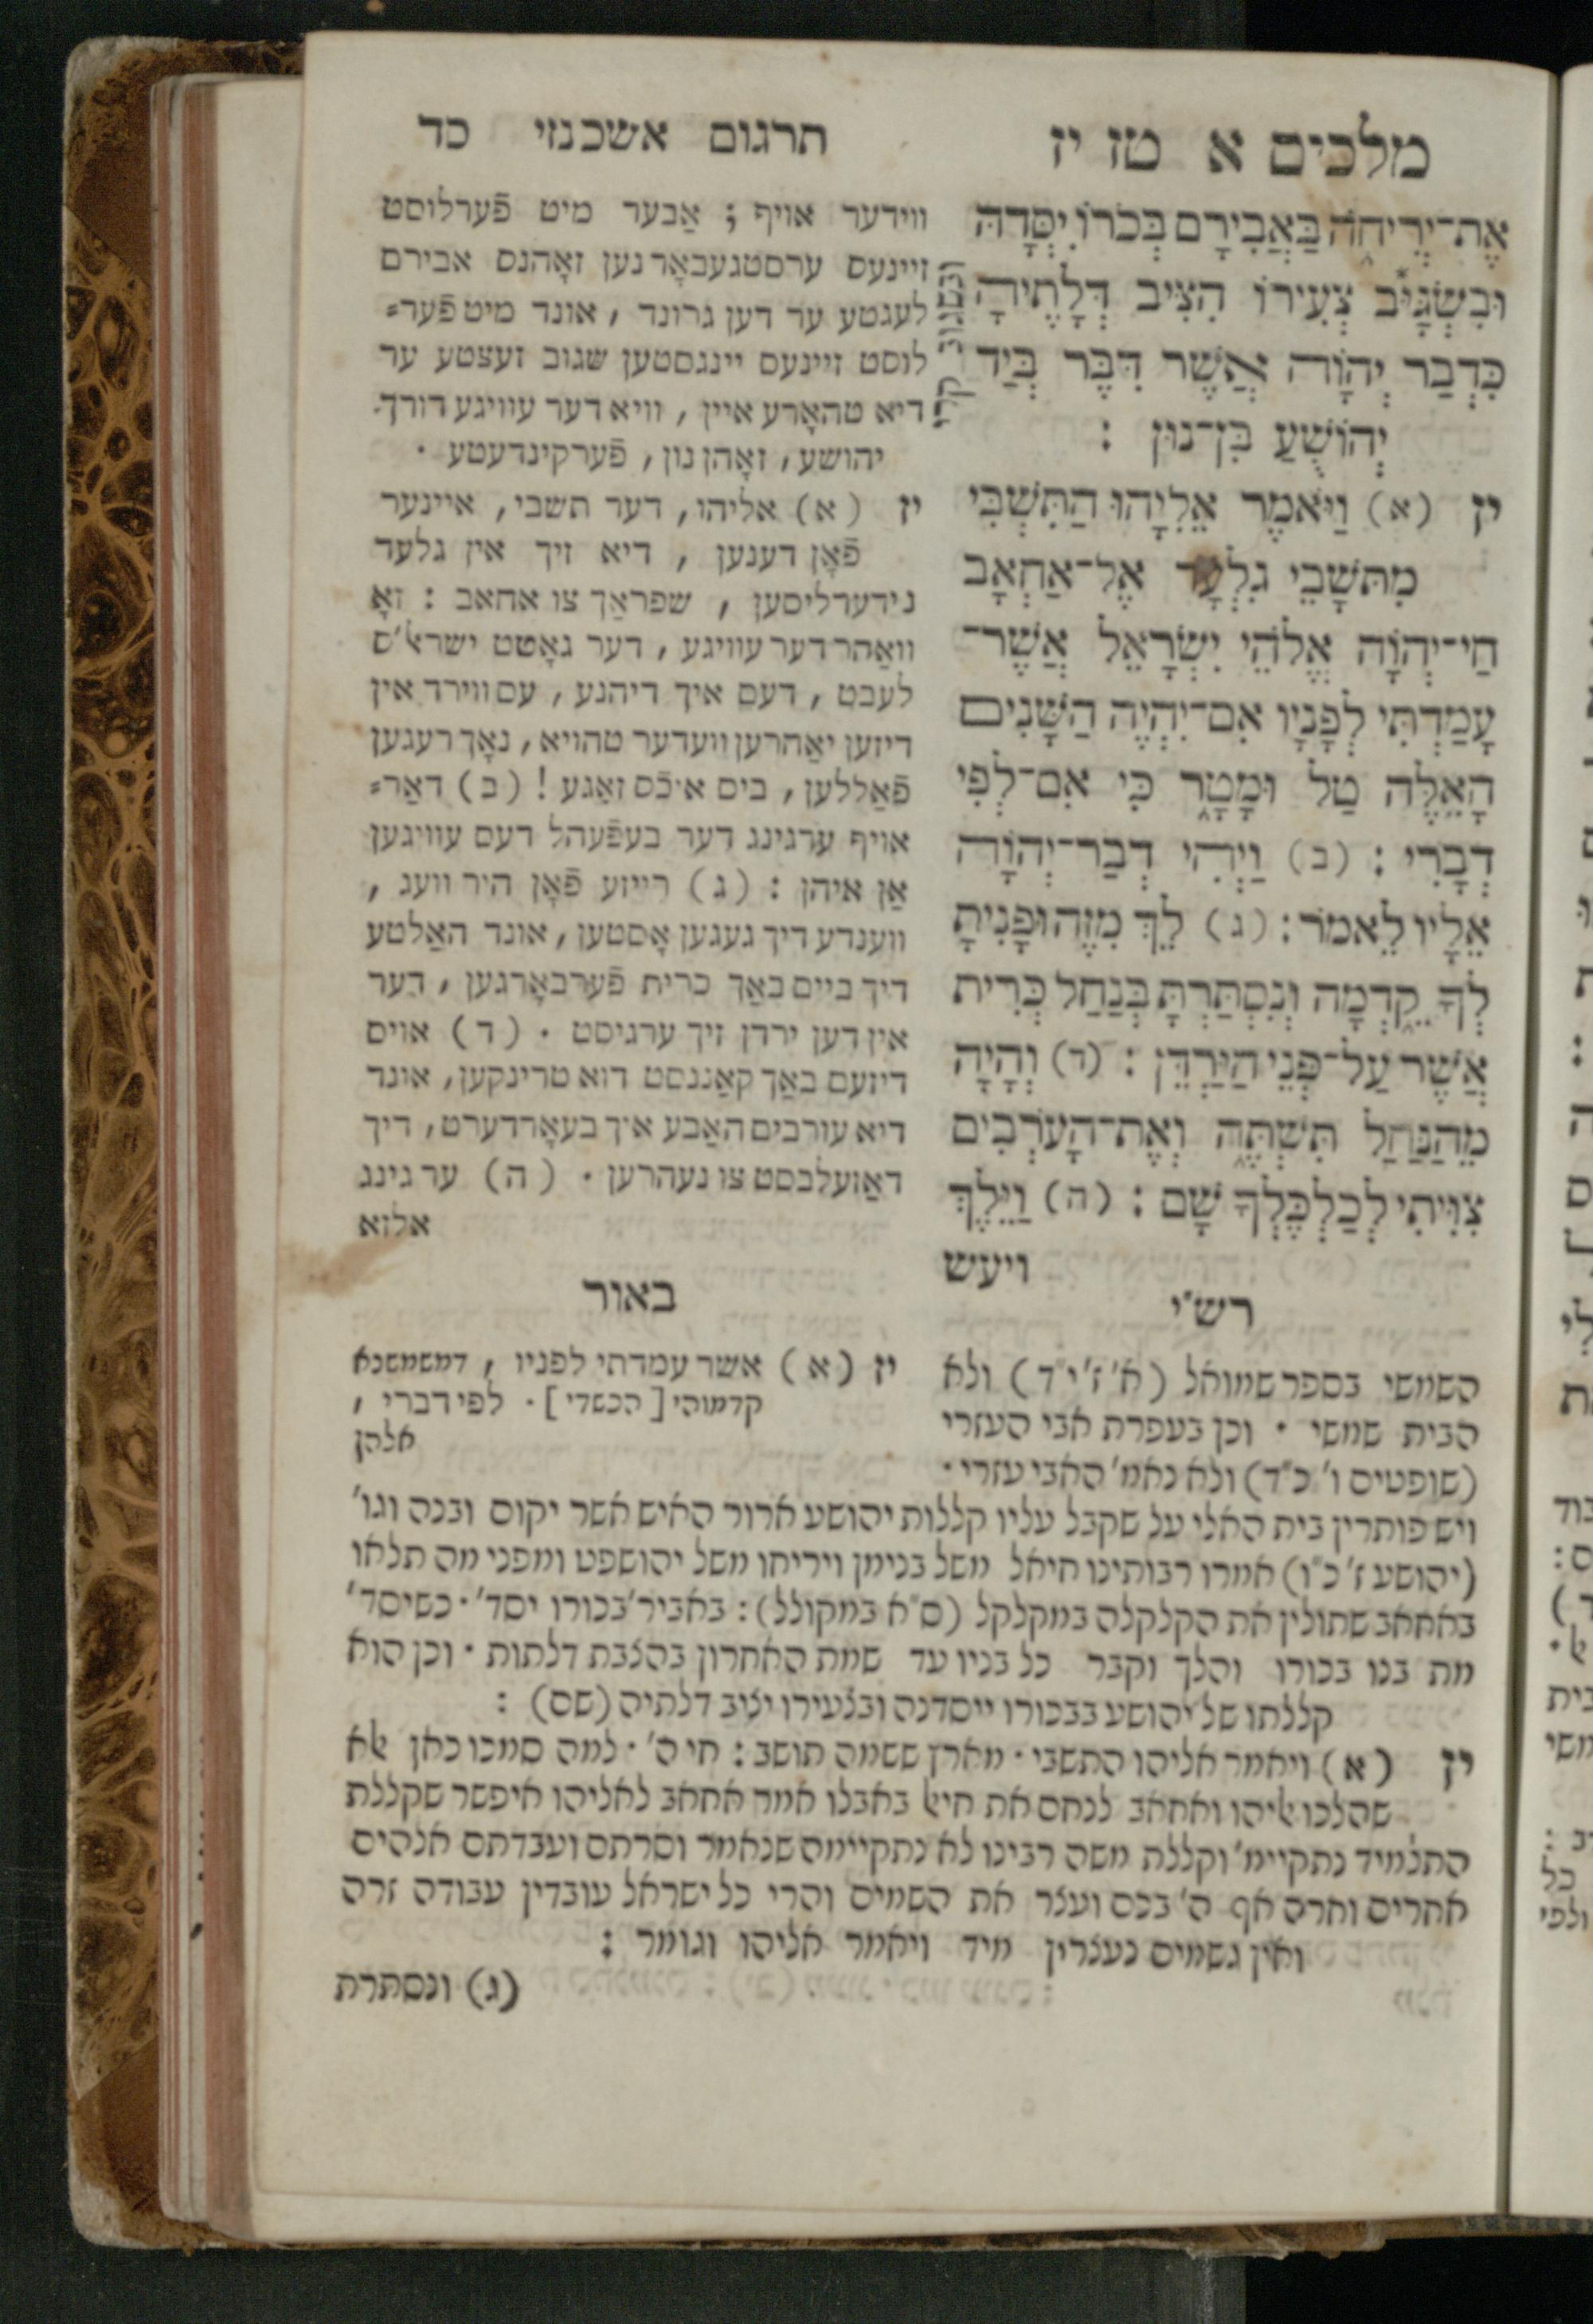 מלכים א טז יז
אֶת־יְרִיחֹ֑ה בַּאֲבִירָ֣ם בְּכֹר֣וֹ יִסְּדָ֗הּ
וּבִשְׂג֤וּב צְעִירוֹ֙ הִצִּ֣יב דְּלָתֶ֔יהָ
כִּדְבַ֣ר יְהֹוָ֔ה אֲשֶׁ֣ר דִּבֶּ֔ר בְּיַ֖ד
יְהוֹשֻׁ֥עַ בִּן־נֽוּן :
יז (א) וַיֹּ֩אמֶר֩ אֵלִיָּ֨הוּ הַתִּשְׁבִּ֜י
מִתֹּשָׁבֵ֣י גִלְעָד֮ אֶל־אַחְאָב֒
חַי־יְהֹוָ֞ה אֱלֹהֵ֤י יִשְׂרָאֵל֙ אֲשֶׁר־
עָמַ֣דְתִּי לְפָנָ֔יו אִם־יִהְיֶ֛ה הַשָּׁנִ֥ים
הָאֵ֖לֶּה טַ֣ל וּמָטָ֑ר כִּ֖י אִם־לְפִ֥י
דְבָרִֽי : (ב) וַיְהִ֥י דְבַר־יְהֹוָ֖ה
אֵלָ֥יו לֵאמֹֽר : (ג) לֵ֣ךְ מִזֶּ֔ה וּפָנִ֥יתָ
לְּךָ֖ קֵ֑דְמָה וְנִסְתַּרְתָּ֙ בְּנַ֣חַל כְּרִ֔ית
אֲשֶׁ֖ר עַל־פְּנֵ֥י הַיַּרְדֵּֽן : (ד) וְהָיָ֖ה
מֵהַנַּ֣חַל תִּשְׁתֶּ֑ה וְאֶת־הָעֹרְבִ֣ים
צִוִּ֔יתִי לְכַלְכֶּלְךָ֖ שָֽׁם : (ה) וַיֵּ֥לֶךְ
ויעש
תרגום אשכנזי כד
ווידער אויף ; אַבער מיט פֿערלוסט
זיינעס ערסטגעבאָרנען זאָהנס אבירם
לעגטע ער דען גרונד , אונד מיט פֿער=
לוסט זיינעס יינגסטען שגוב זעצטע ער
דיא טהאָרע איין , וויא דער עוויגע דורך
יהושע , זאָהן נון , פֿערקינדעטע .
יז (א) אליהו , דער תשבי , איינער
פֿאָן דענען , דיא זיך אין גלעד
נידערליסען , שפראַך צו אחאב : זאָ
וואַהר דער עוויגע , דער גאָטט ישראל'ס
לעבט , דעם איך דיהנע , עס ווירד אין
דיזען יאַהרען וועדער טהויא , נאָך רעגען
פֿאַללען , ביס איכ'ס זאַגע ! (ב) דאַר=
אויף ערגינג דער בעפֿעהל דעס עוויגען
אַן איהן : (ג) רייזע פֿאָן היר וועג ,
ווענדע דיך געגען אָסטען , אונד האַלטע
דיך ביים באַך כרית פֿערבאָרגען , דער
אין דען ירדן זיך ערגיסט . (ד) אויס
דיזעם באַך קאַננסט דוא טרינקען , אונד
דיא עורבים האַבע איך בעאָרדערט , דיך
דאַזעלבסט צו נעהרען . (ה) ער גינג
אלזא
רש"י
השמשי בספר שמואל (א' ז' י"ד) ולא
הבית שמשי . וכן בעפרת אבי העזרי
(שופטים ו' כ"ד) ולא נאמ' האבי עזרי .
באור
יז (א) אשר עמדתי לפניו , דמשמשנא
קדמוהי [הכשדי] . לפי דברי ,
אלהן
ויש פותרין בית האלי על שקבל עליו קללות יהושע ארור האיש אשר יקום ובנה וגו'
(יהושע ז' כ"ו) אמרו רבותינו חיאל משל בנימן ויריחו משל יהושפט ומפני מה תלאו
באחאב שתולין את הקלקלה במקלקל (ס"א במקולל) : באביר' בכורו יסד' . כשיסד'
מת בנו בכורו והלך וקבר כל בניו עד שמת האחרון בהצבת דלתות . וכן הוא
קללתו של יהושע בבכורו ייסדנה ובצעירו יציב דלתיה (שם) :
יז (א) ויאמר אליהו התשבי . מארץ ששמה תושב : חי ה' . למה סמכו כאן אלא
שהלכו אליהו ואחאב לנחם את חיאל באבלו אמר אחאב לאליהו איפשר שקללת
התלמיד נתקיימ' וקללת משה רבינו לא נתקיימה שנאמר וסרתם ועבדתם אלהים
אחרים וחרה אף ה' בכם ועצר את השמים והרי כל ישראל עובדין עבודה זרה
ואין גשמים נעצרין מיד ויאמר אליהו וגומר :
(ג) ונסתרת